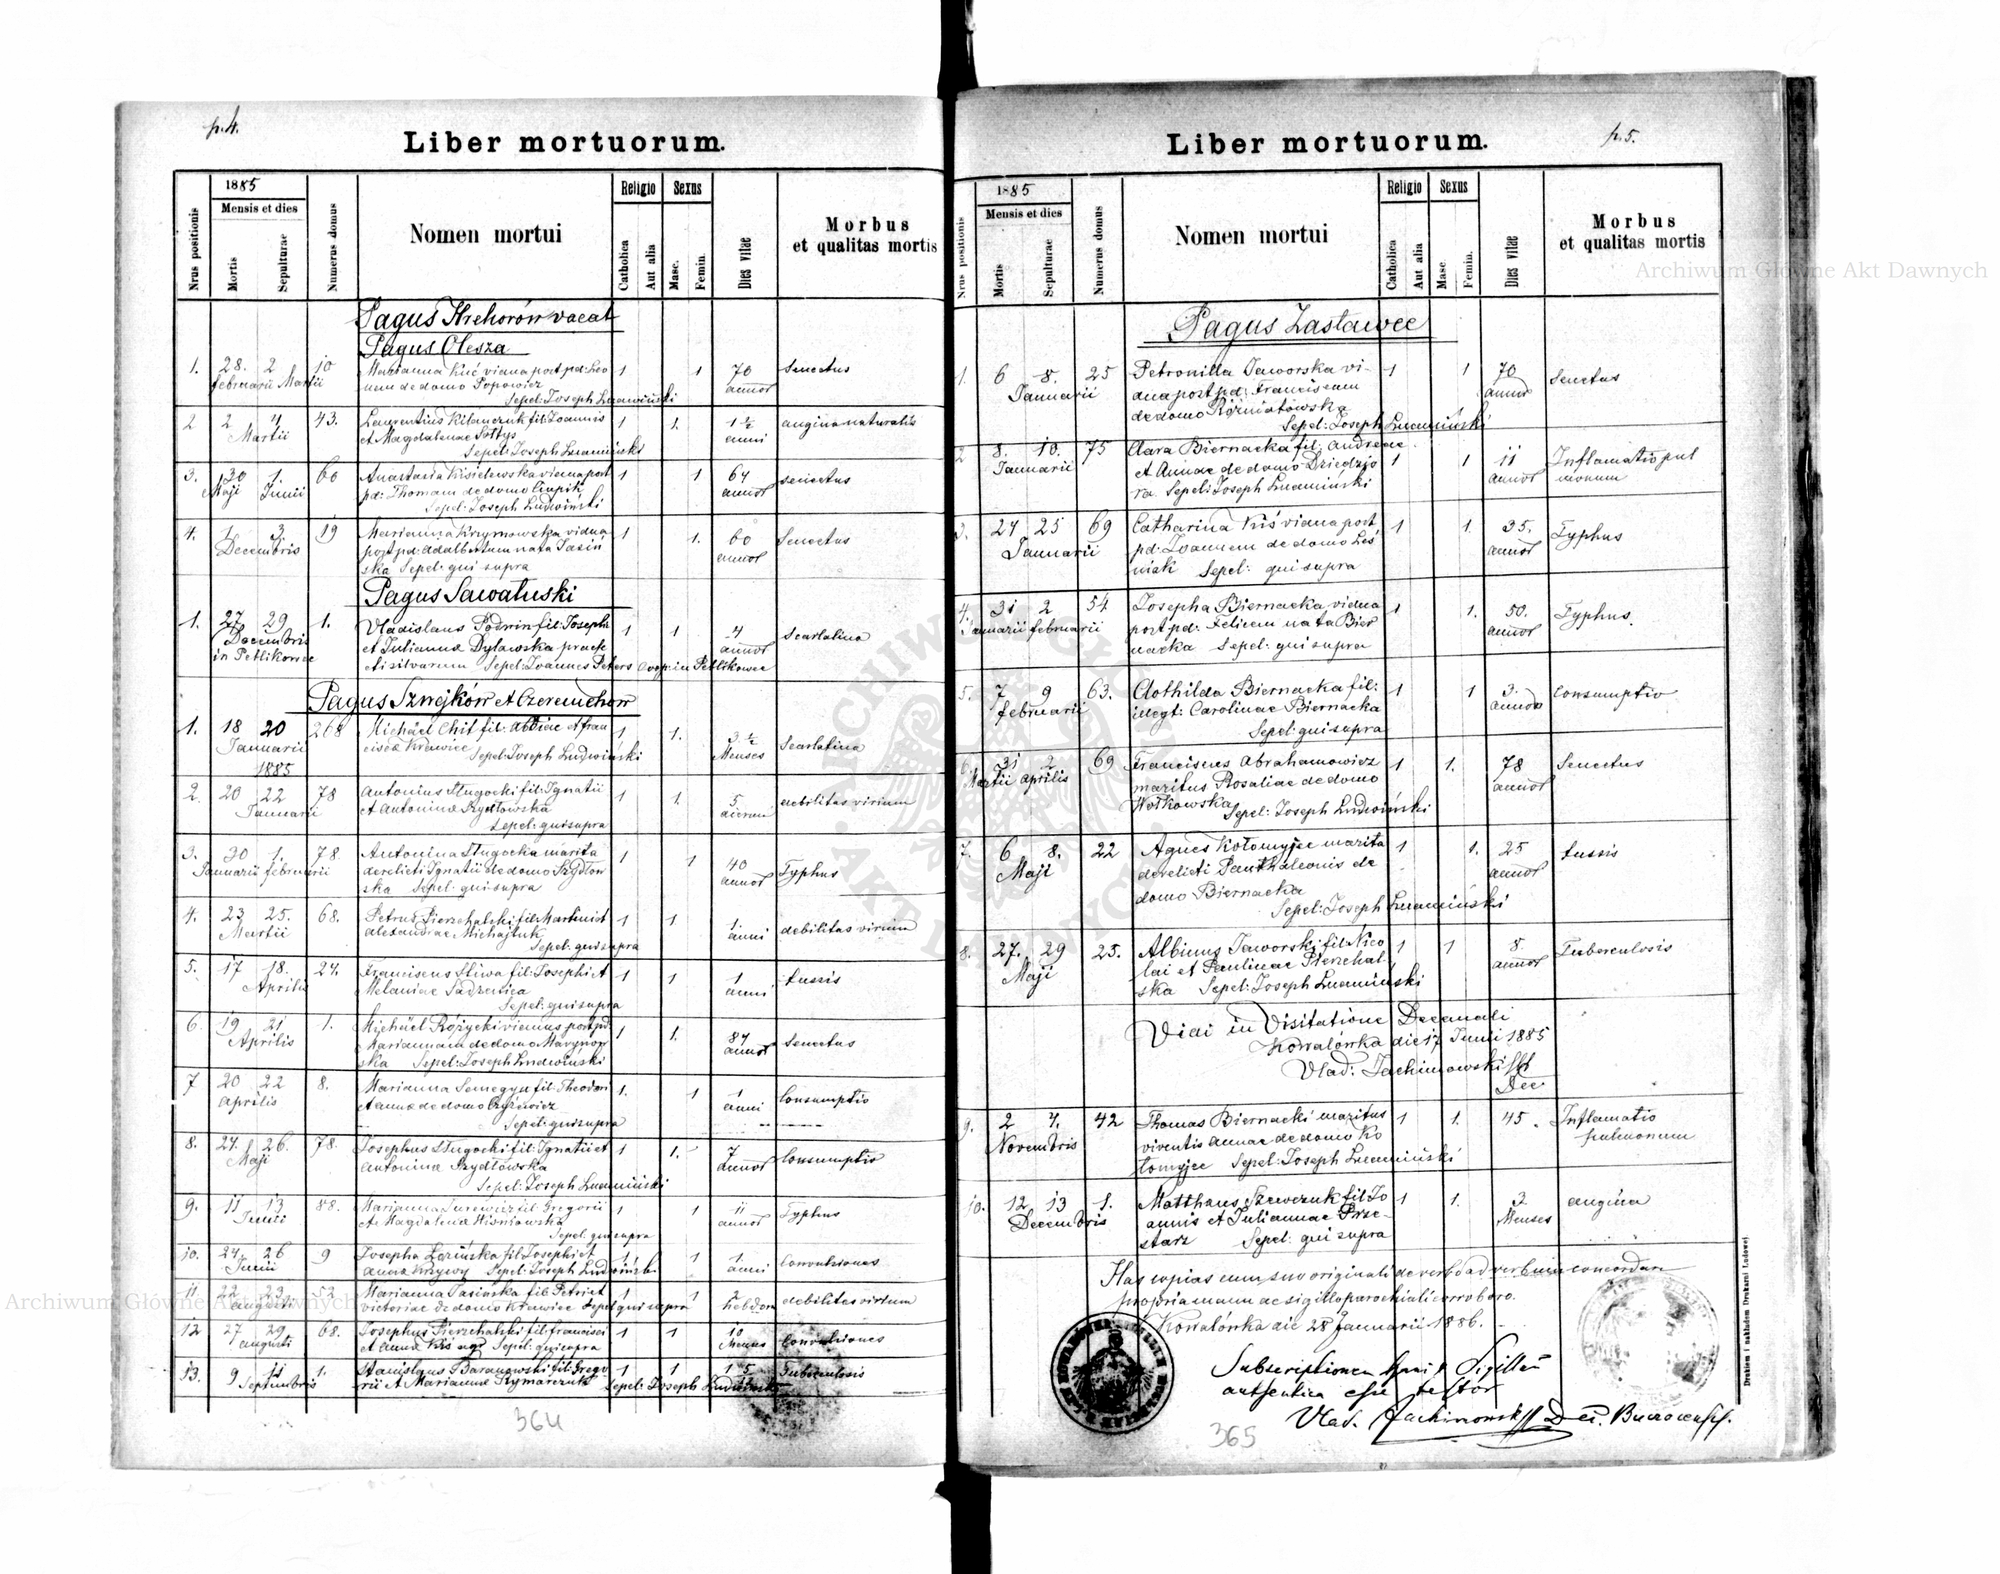 p. 4.
Liber mortuorum.
Nrus positionis
1885
Mensis et dies
Mortis
Sepulturae
Numerus domus
Nomen mortui
Religio
Catholica
Aut alia
Sexus
Masc.
Femin.
Dies vitae
Morbus
et qualitas mortis
Pagus Hrehorów vacat
Pagus Olesza
1. 28. 2 10 Marianna Kuć vidua post pd: Leo 1 1 70 Senectus
februarii Martii nem de domo Popowicz annor
Sepel: Joseph Ludwiński
2 2 4 43. Laurentius Kilanczuk fil: Joannis 1 1. 1½ angina naturalis
Martii et Magdalenae Sołtys anni
Sepel: Joseph Ludwiński
3. 30 1. 60 Anastasia Kisielewska vidua post 1 1 64 senectus
Maji Junii pd: Thomam de domo annor
Sepel: Joseph Ludwiński
4. 1 3 19 Marianna Krzyrnowska vidua 1 1. 60 Senectus
Decembris post pd: Adalbertum nata Jasiń annor
ska Sepel: qui supra
Pagus Sawatuski
1. 27. 29 1. Vladislaus Podwin fil: Josephi 1 1 4 Scarlatina
Decembris et Julianna Dylawska praefe annor
in Petlikowce cti silvarum Sepel: Joannes Peters coop: in Petlikowce
Pagus Szwejków et Czeremchow
1. 18 20 268 Michäel Chit fil: et Fran 1 1. 3½ Scarlatina
Januarii ciscä Krawiec Menses
1885 Sepel: Joseph Ludwiński
2. 20 22 78 Antonius Sługocki fil: Ignatii 1 1. 5 debilitas virium
Januarii et Antoninä Szydłowska dierum
Sepel: qui supra
3. 30 1. 78. Antonina Sługocka marita 1 1 40 Typhus
Januarii februarii derelicti Ignatii de domo Szydłow annor
ska Sepel: qui supra
4. 23 25. 68. Petrus Pierzchalski fil: Martini et 1 1 1 debilitas virium
Martii Alexandrae Michajluk anni
Sepel: qui supra
5. 17 18. 24. Franciscus Sliwa fil: Josephi et 1 1 1 tussis
Aprilis Melaniae Sadzenica anni
Sepel: qui supra
6. 19 21 1. Michäel Różycki viduus post pd: 1 1. 84 Senectus
Aprilis Mariannam de domo Marynow annor
ska Sepel: Joseph Ludwiński
7 20 22 8. Marianna Semegyn fil: Theodori 1. 1 1 Consumptio
Aprilis et Annä de domo Czyżewicz anni
Sepel: qui supra
8. 24. 26. 78. Josephus Sługocki fil: Ignatii et 1 1. 7 Consumptio
Maji Antoninä Szydłowska annor
Sepel: Joseph Ludwiński
9. 11 13 88. Marianna Surewicz fil: Gregorii 1 1 11 Typhus
Junii et Magdalenä Wisniowska annor
Sepel: qui supra
10. 24. 26 9 Josepha Łozińska fil: Josephi et 1 1 1 Convulsiones
Junii Annä Krzywy Sepel: Joseph Ludwiński anni
11 22 23 52 Marianna Jasińska fil: Petri et 1 1 1 debilitas virium
Augusti Victoriae de domo Krawiec Sepel: qui supra hebdom
12 27 29 68. Josephus Pierzchalski fil: Francisci 1 1 10 Convulsiones
Augusti et Annä Kiś Sepel: qui supra Menses
13. 9 11 1. Stanislaus Baranowski fil: Grego 1 1 Tuberculosis
Septembris rii et Mariannä Rymarczuk Sepel: Joseph Ludwiński
364
p. 5.
Liber mortuorum.
Nrus positionis
1885
Mensis et dies
Mortis
Sepulturae
Numerus domus
Nomen mortui
Religio
Catholica
Aut alia
Sexus
Masc
Femin.
Dies vitae
Morbus
et qualitas mortis
Pagus Zastawce
1. 6 8. 25 Petronilla Jaworska vi- 1 1 70 Senectus
Januarii dua post pd: Franciscum annor
de domo Rożniatowska
Sepel: Joseph Ludwiński
2 8. 10. 75 Clara Biernacka fil: Andreae 1 1 11 Inflamatio pul
Januarii et Annae de domo Dziedzjo annor monum
ra. Sepel: Joseph Ludwiński
3. 24 25 69 Catharina Kiś vidua post 1 1. 35. Typhus
Januarii pd: Joannem de domo Leś annor
niak Sepel: qui supra
4. 31 2 54 Josepha Biernacka vidua 1 1. 50. Typhus.
Januarii februarii post pd: Felicem nata Bier annor
nacka Sepel: qui supra
5. 7 9 63. Clothilda Biernacka fil: 1 1 3. Consumptio
februarii illegt: Carolinae Biernacka annor
Sepel: qui supra
6. 31 2 69 Franciscus Abrahamowicz 1 1. 78 Senectus
Martii Aprilis maritus Rosaliae de domo annor
Wołkowska
Sepel: Joseph Ludwiński
7. 6 8. 22 Agnes Kołomyjec marita 1 1. 25 tussis
Maji derelicti Panthaleonis de annor
domo Biernacka
Sepel: Joseph Ludwiński
8. 27. 29 25. Albinus Jaworski fil: Nico 1 1 8. Tuberculosis
Maji lai et Paulinae Pierzchal annor
ska Sepel: Joseph Ludwiński
Vidi in Visitatione Decanali
Kowalówka die 17 Junii 1885
Vlad: Jachimowski
Dec
9. 2 4. 42 Thomas Biernacki maritus 1 1. 45. Inflamatio
Novembris viventis Annae de domo Ko pulmonum
łomyjec Sepel: Joseph Ludwiński
10. 12 13 1. Matthäus Szewczuk fil: Jo 1 1. 3 angina
Decembris annis et Juliannae Prze- Menses
starz Sepel: qui supra
Has copias cum suo originali de verbo ad verbum concordare
propria manu ac sigillo parochiali corroboro.
Kowalówka die 28 Januarii 1886.
Subscriptionem hanc & Sigillum
authentica esse testor
Vlad. Jachimowski Dec. Buczacensis.
365
Drukiem i nakładem Drukarni Ludowej
Archiwum Główne Akt Dawnych
Archiwum Główne Akt Dawnych